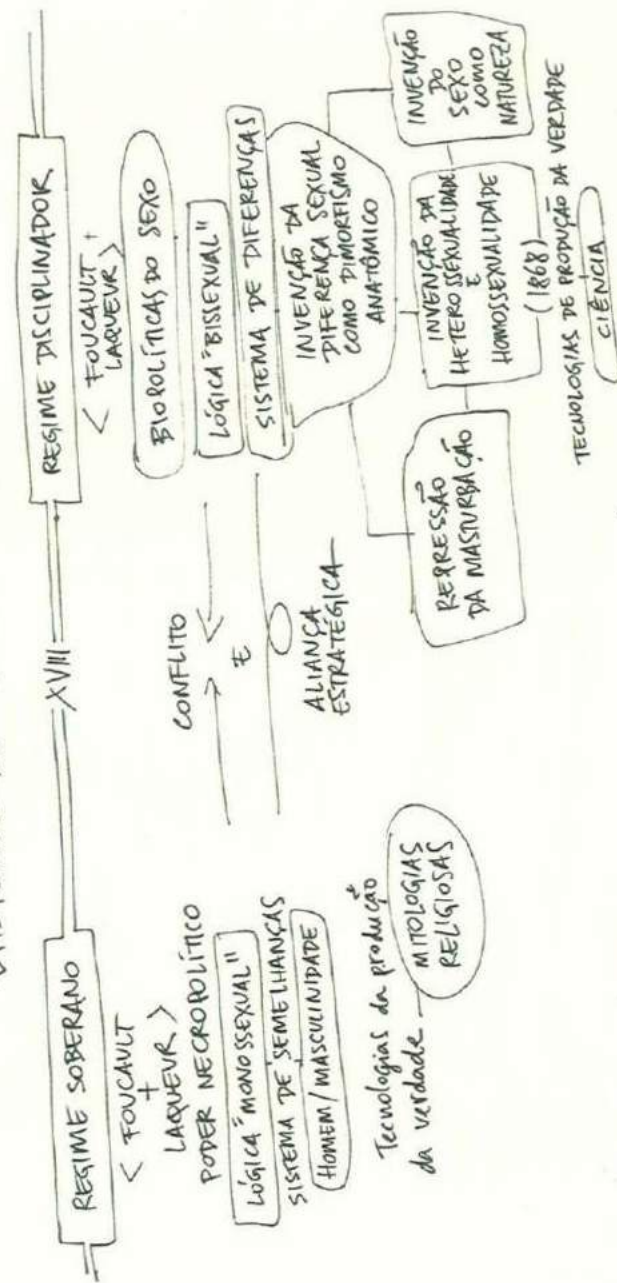 REGIME SOBERANO
< FOUCAULT
+
LAQUEUR >
PODER NECROPOLÍTICO
LÓGICA "MONOSSEXUAL"
SISTEMA DE SEMELHANÇAS
HOMEM/MASCULINIDADE
Tecnologias da produção
da verdade
MITOLOGIAS
RELIGIOSAS
XVIII
CONFLITO
E
ALIANÇA
ESTRATÉGICA
REGIME DISCIPLINADOR
< FOUCAULT +
LAQUEUR >
BIOPOLÍTICAS DO SEXO
LÓGICA "BISSEXUAL"
SISTEMA DE DIFERENÇAS
INVENÇÃO DA
DIFERENÇA SEXUAL
COMO DIMORFISMO
ANATÔMICO
REPRESSÃO
DA MASTURBAÇÃO
INVENÇÃO DA
HETEROSSEXUALIDADE
E
HOMOSSEXUALIDADE
(1868)
INVENÇÃO
DO
SEXO
COMO
NATUREZA
TECNOLOGIAS DE PRODUÇÃO DA VERDADE
CIÊNCIA